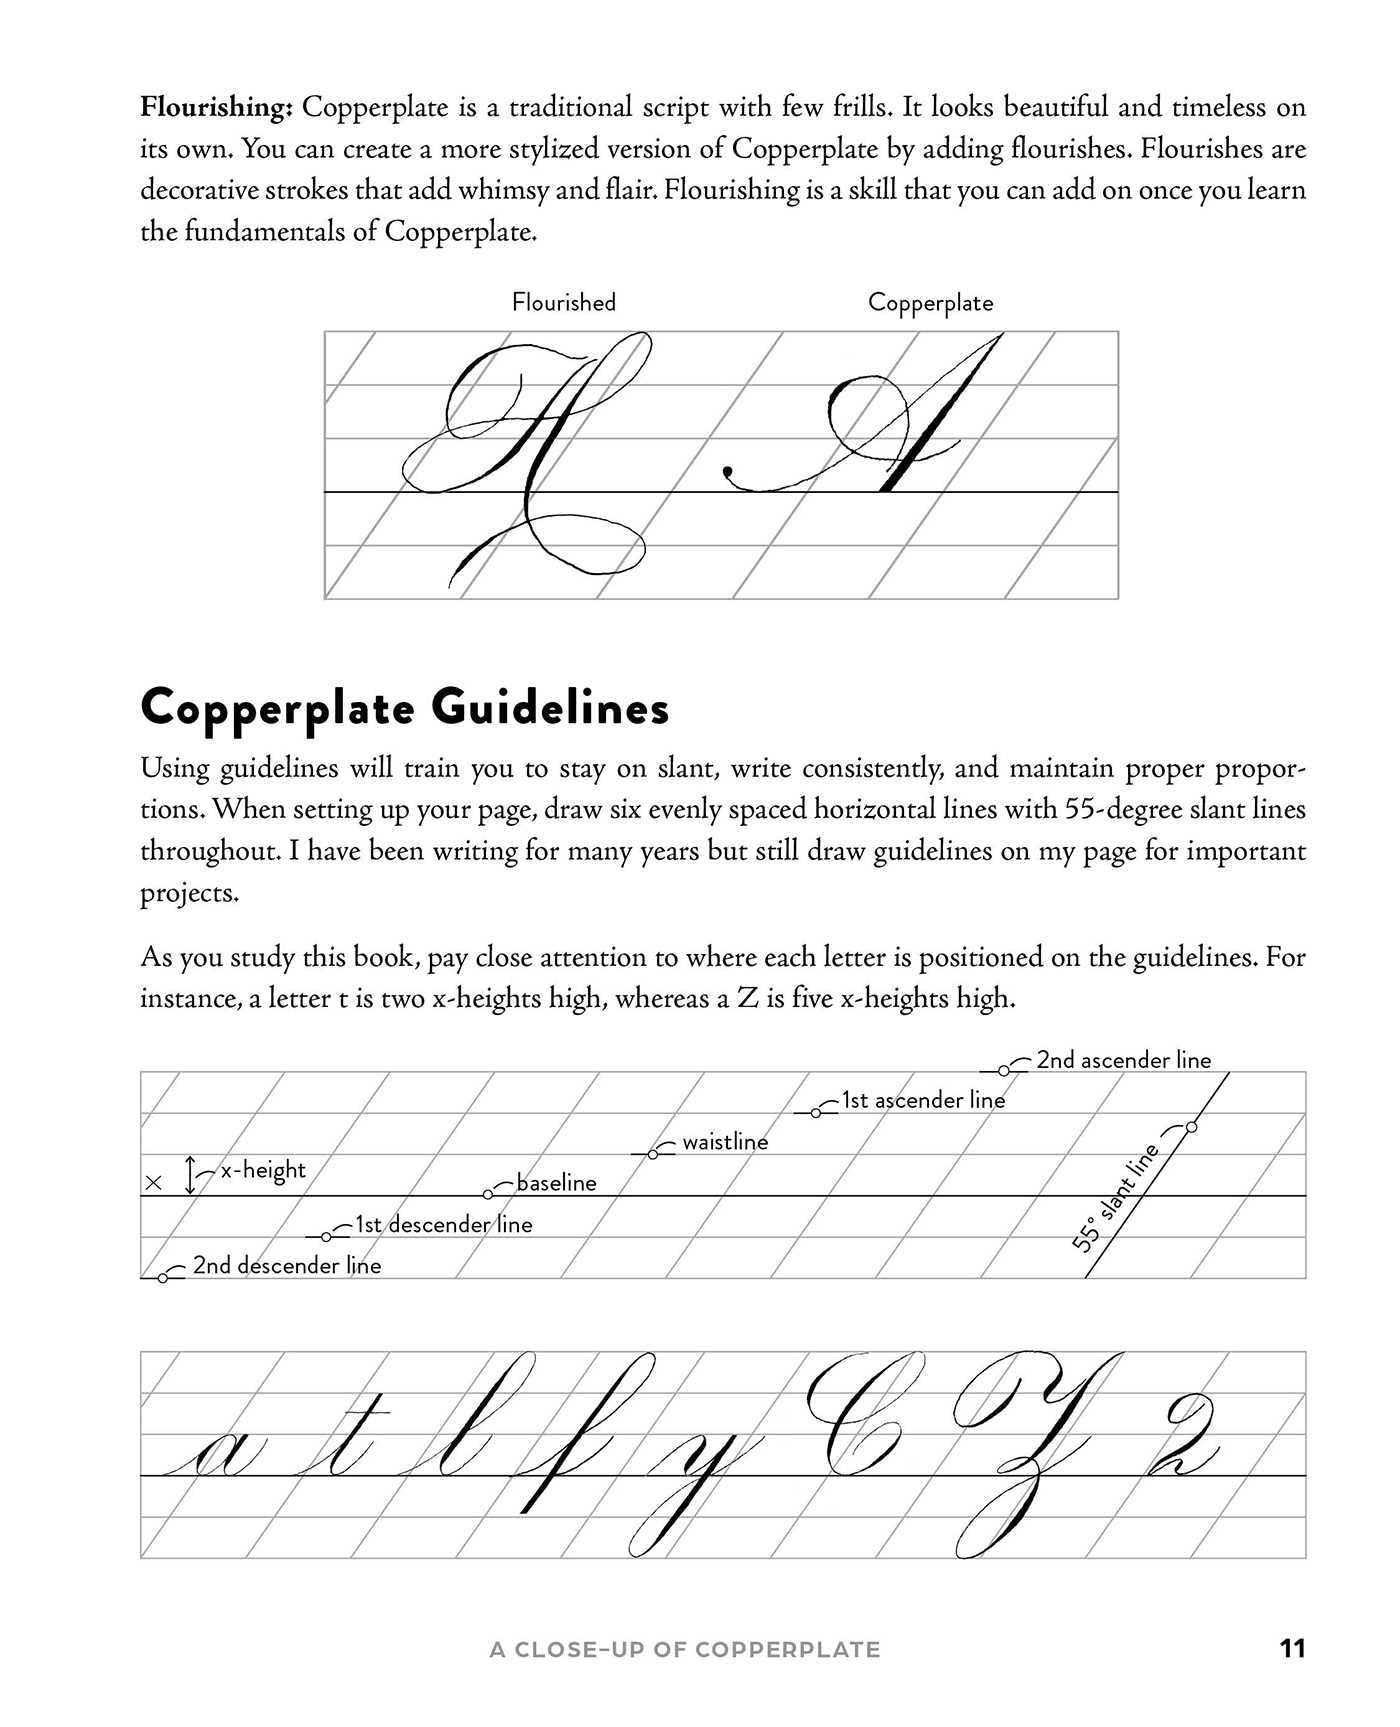 Flourishing: Copperplate is a traditional script with few frills. It looks beautiful and timeless on
its own. You can create a more stylized version of Copperplate by adding flourishes. Flourishes are
decorative strokes that add whimsy and flair. Flourishing is a skill that you can add on once you learn
the fundamentals of Copperplate.
Flourished Copperplate
A A
Copperplate Guidelines
Using guidelines will train you to stay on slant, write consistently, and maintain proper propor-
tions. When setting up your page, draw six evenly spaced horizontal lines with 55-degree slant lines
throughout. I have been writing for many years but still draw guidelines on my page for important
projects.
As you study this book, pay close attention to where each letter is positioned on the guidelines. For
instance, a letter t is two x-heights high, whereas a Z is five x-heights high.
2nd ascender line
1st ascender line
waistline
x-height
×
baseline
1st descender line
2nd descender line
55° slant line
a t l p y C Z 2
A CLOSE-UP OF COPPERPLATE 11